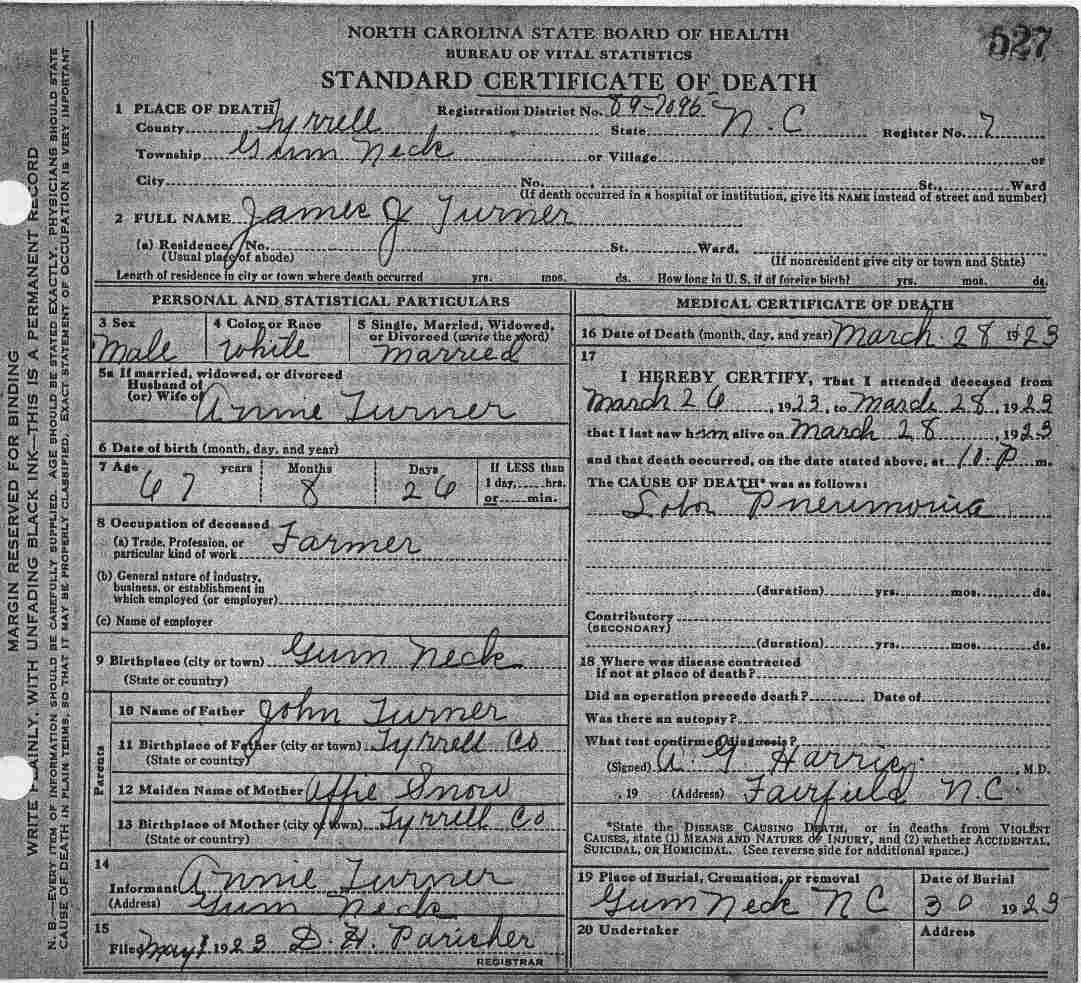 527
NORTH CAROLINA STATE BOARD OF HEALTH
BUREAU OF VITAL STATISTICS
STANDARD CERTIFICATE OF DEATH
1 PLACE OF DEATH Registration District No. 89-7096
County Tyrrell State N.C Register No. 7
Township Gum Neck or Village or
City No. , St., Ward
(If death occurred in a hospital or institution, give its NAME instead of street and number)
2 FULL NAME James J Turner
(a) Residence, No. St. Ward.
(Usual place of abode) (If nonresident give city or town and State)
Length of residence in city or town where death occurred yrs. mos. ds. How long in U. S. if of foreign birth? yrs. mos. ds.
PERSONAL AND STATISTICAL PARTICULARS
3 Sex
Male
4 Color or Race
White
5 Single, Married, Widowed,
or Divorced (write the word)
Married
5a If married, widowed, or divorced
Husband of
(or) Wife of Annie Turner
6 Date of birth (month, day, and year)
7 Age years Months Days If LESS than
1 day, hrs.
or min.
67 8 26
8 Occupation of deceased
(a) Trade, Profession, or
particular kind of work Farmer
(b) General nature of industry,
business, or establishment in
which employed (or employer)
(c) Name of employer
9 Birthplace (city or town) Gum Neck
(State or country)
Parents
10 Name of Father John Turner
11 Birthplace of Father (city or town) Tyrrell Co
(State or country)
12 Maiden Name of Mother Affie Snow
13 Birthplace of Mother (city or town) Tyrrell Co
(State or country)
14
Informant Annie Turner
(Address) Gum Neck
15
Filed May 1 1923 D. H. Paricher
REGISTRAR
MEDICAL CERTIFICATE OF DEATH
16 Date of Death (month, day, and year) March 28 1923
17
I HEREBY CERTIFY, That I attended deceased from
March 26, 1923, to March 28, 1923
that I last saw him alive on March 28, 1923
and that death occurred, on the date stated above, at 10 P m.
The CAUSE OF DEATH* was as follows:
Lobar Pneumonia
(duration) yrs. mos. ds.
Contributory
(SECONDARY)
(duration) yrs. mos. ds.
18 Where was disease contracted
if not at place of death?
Did an operation precede death? Date of
Was there an autopsy?
What test confirmed diagnosis?
(Signed) A. G Harris, M.D.
, 19 (Address) Fairfield N.C
*State the DISEASE CAUSING DEATH, or in deaths from VIOLENT
CAUSES, state (1) MEANS AND NATURE OF INJURY, and (2) whether ACCIDENTAL,
SUICIDAL, OR HOMICIDAL. (See reverse side for additional space.)
19 Place of Burial, Cremation, or removal
Gum Neck NC
Date of Burial
30 1923
20 Undertaker
Address
MARGIN RESERVED FOR BINDING
WRITE PLAINLY, WITH UNFADING BLACK INK—THIS IS A PERMANENT RECORD
N. B.—EVERY ITEM OF INFORMATION SHOULD BE CAREFULLY SUPPLIED. AGE SHOULD BE STATED EXACTLY. PHYSICIANS SHOULD STATE
CAUSE OF DEATH IN PLAIN TERMS, SO THAT IT MAY BE PROPERLY CLASSIFIED. EXACT STATEMENT OF OCCUPATION IS VERY IMPORTANT